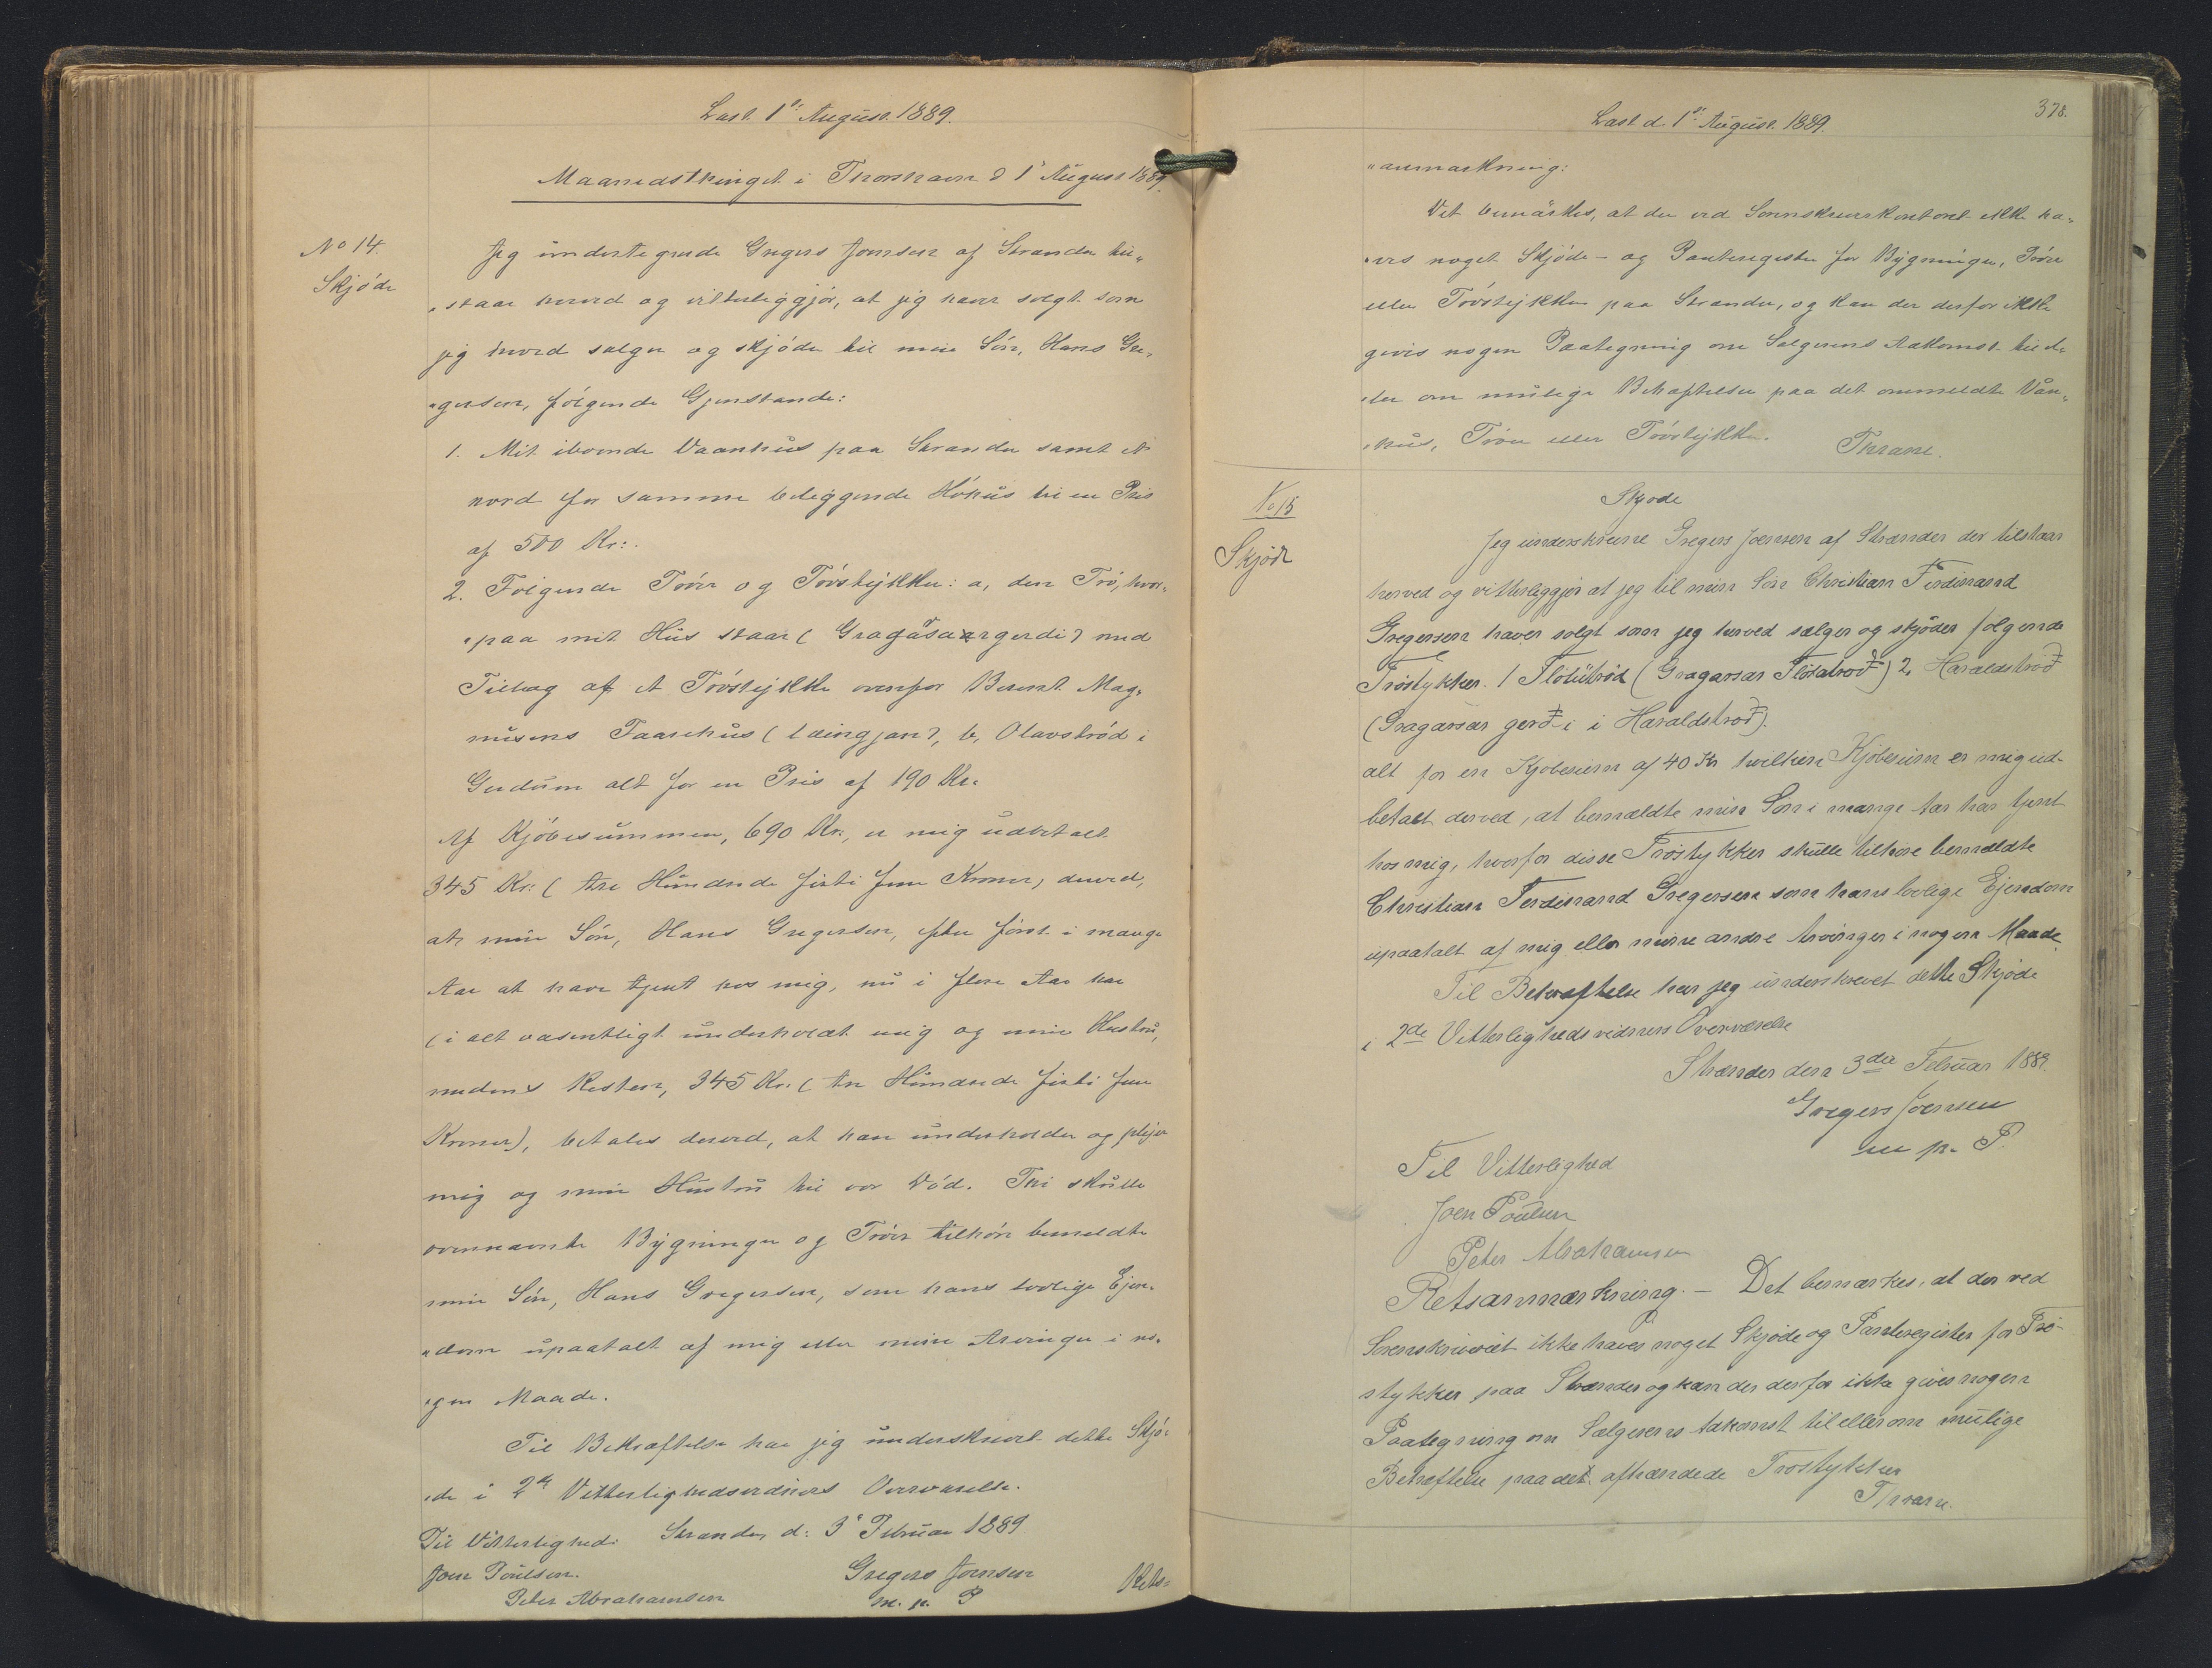 Læst 1ste August 1889.
Maanedsthinget i Thorshavn d 1' August 1889.
No 14.
Skjöde
Jeg undertegnede Gregers Joensen af Strander til„
„staar herved og vitterliggjör, at jeg haver solgt som
jeg herved sælger og skjöder til min Sön, Hans Gre„
„gersen, fölgende Gjenstande:
1. Mit iboende Vaanhus paa Strander samt et
nord for samme beliggende Höhus til en Pris
af 500 Kr:.
2. Fölgende Tröer og Tröstykker: a, den Trö, hvor„
„paa mit Hus staar ( Gragasargerdi) med
Tillæg af et Tröstykke ovenfor Berent Mag„
nusens Taarehus (   ), b, Olavströd i
Gerdum alt for en Pris af 190 Kr.
Af Kjöbesummen, 690 Kr., er mig udbetalt
345 Kr: ( tre Hundrede firti fem Kroner, derved,
at min Sön, Hans Gregersen, efter först i mange
Aar at have tjent hos mig, nu i flere Aar har
( i alt væsentligt underholdt mig og min Hustru,
medens Resten, 345 Kr. ( tre Hundrede firti fem
Kroner), betales derved, at han underholder og plejer
mig og min Hustru til vor Död. Thi skulle
ovennævnte Bygninger og Tröer tilhöre bemeldte
min Sön, Hans Gregersen, som hans lovlige Ejen„
„dom upaatalt af mig eller mine Arvinger i no„
„gen Maade.
Til Bekræftelse har jeg underskrevet dette Skjö„
„de i 2de Vitterlighedsvidners Overværelse.
Til Vitterlighed: Strander, d: 3' Februar 1889
Joen Poulsen. Gregers Joensen
Peter Abrahamsen m. p. P
Rets„
Læst d. 1ste August 1889.
378.
„anmærkning:
Det bemærkes, at der ved Sorenskriverkontoret ikke ha„
„ves noget Skjöde- og Panteregister for Bygninger, Tröer
eller Tröstykker paa Strander, og kan der derfor ikke
gives nogen Paategning om Sælgerens Adkomst til el„
„ler om mulige Behæftelser paa det ommeldte Vån„
„hus, Tröer eller Tröstykker. Thrane.
No 15
Skjøde
Skjøde
Jeg underskrevne Gregers Joensen af Strænder der tilstaar
herved og vitterliggjør at jeg til min Søn Christian Ferdinand
Gregersen haver solgt som jeg herved sælger og skjøder følgende
Trøstykker. 1 Flötutrød (Gragarsar Flöratroð) 2, Haraldstroð
(Gragarsar gerð i i Haraldstroð).
alt for en Kjøbesum af 40 Kr hvilken Kjøbesum er mig ud-
betalt derved, at bemældte min Søn i mange Aar har tjent
hos mig, hvorfor disse Trøstykker skulle tilhøre bemældte
Christian Ferdinand Gregersen som hans lovlige Ejendom
upaatalt af mig eller mine andre Arvinger i nogen Maade
Til Bekræftelse har jeg underskrevet dette Skjøde
i 2de Vitterlighedsvidners Overværelse
Strænder den 3die Februar 1889.
Gregers Joensen
m p. P.
Til Vitterlighed
Joen Poulsen
Peter Abrahamsen
Retsanmærkning. – Det bemærkes, at der ved
Sorenskriveriet ikke haves noget Skjøde og Panteregister for Trø-
stykker paa Strænder og kan der derfor ikke gives nogen
Paategning om Sælgerens Adkomst til eller om mulige
Behæftelse paa det afhændede Trøstykker
Thrane.